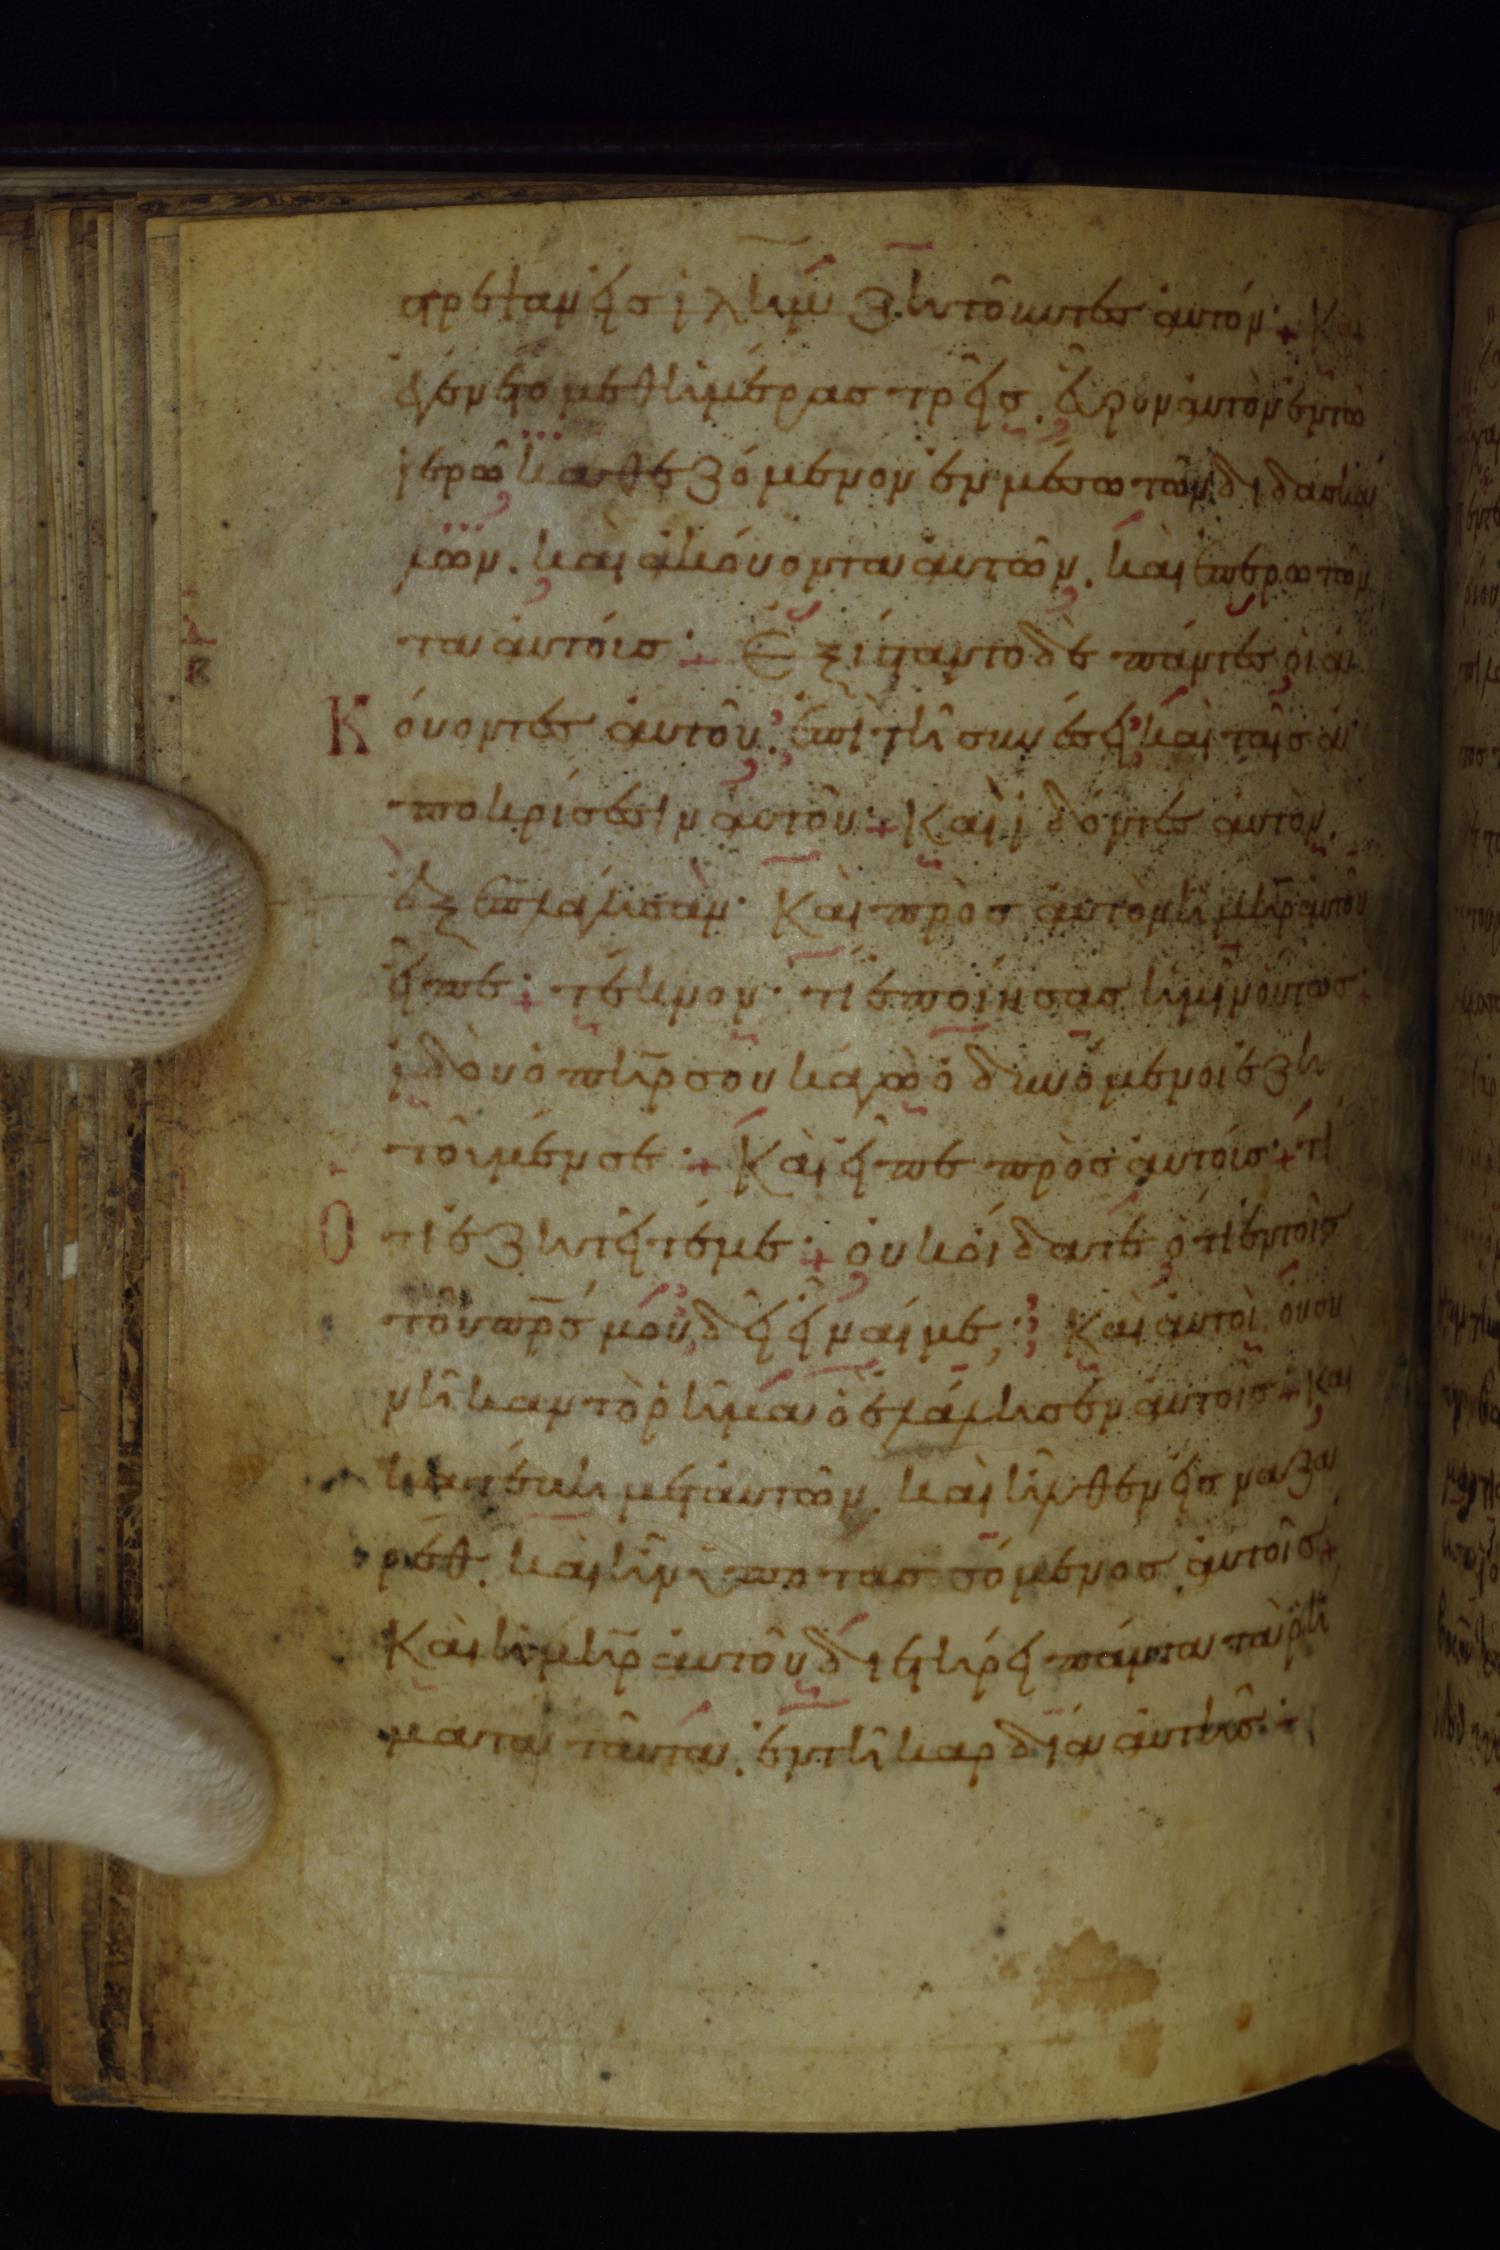 στρεψαν εἰσ ἱλὴμ ζητοῦντεσ ἀυτόν· + Και
ἐγένετο μεθ ἡμέρασ τρεῖσ. εὗρον ἀυτὸν ἐν τῶ
ἱερῶ καθεζόμενον ἐν μέσω τῶν διδασκά
λων. καὶ ἀκόυοντα ἀυτῶν. καὶ ἐπερωτῶν
τα ἀυτόυσ· + Ἐξίσταντο δὲ πάντεσ ὁι ἀ
Κόυοντεσ ἀυτοῦ, ἐπὶ τῆ συνέσει καὶ ταῖσ ἀ
ποκρίσεσιν ἀυτοῦ· + Καὶ ἰδόντεσ ἀυτὸν.
ἐξεπλάγησαν· Καὶ πρὸσ ἀυτὸν ἡ μηρ ἀυτοῦ
εἶπε· + τέκνον· τί ἐποίησασ ἡμῖν ὅυτωσ· +
ἰδὸυ ὁ πηρ σου καγὼ ὀδυνόμενοι ἐζη
τοῦμέν σε· + Καὶ εἶπε πρὸσ ἀυτόυσ· + τί
Ὁτι ἐζητεῖτέ με· + ὀυκ ὀίδατε ὅτι ἐν τοῖσ
τοῦ πρσ μόυ, δεῖ εἶναί με; Καὶ ἀυτοὶ ὀυ συ
νῆκαν τὸ ῥῆμα ὃ ἐλάλησεν ἀυτοῖσ· + Και
κατέβη μετ ἀυτῶν. καὶ ἦλθεν εἰσ ναζα
ρέθ. καὶ ἦν ὑποτασσόμενοσ ἀυτοῖσ +
Καὶ ἡ μηρ ἀυτοῦ διετήρει πάντα τὰ ῥή
ματα ταῦτα. ἐν τῆ καρδία ἀυτῆσ· +